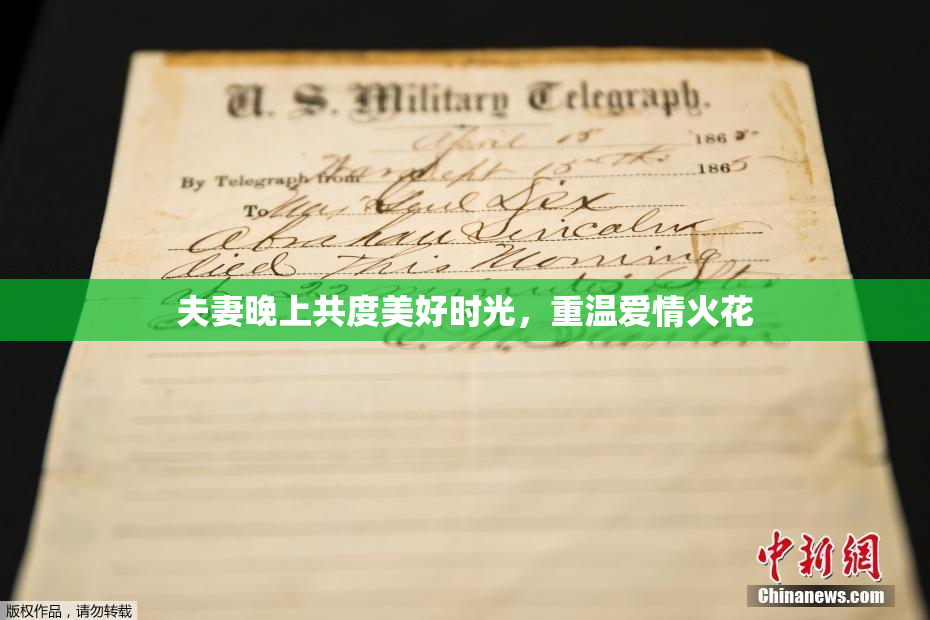 U. S. Military Telegraph.
April 15 1865
By Telegraph from War Dept 15th 1865
To Maj Genl Dix
Abraham Lincoln
died This Morning
at 22 minutes after
夫妻晚上共度美好时光，重温爱情火花
E. M. Stanton
中新网
Chinanews.com
版权作品，请勿转载